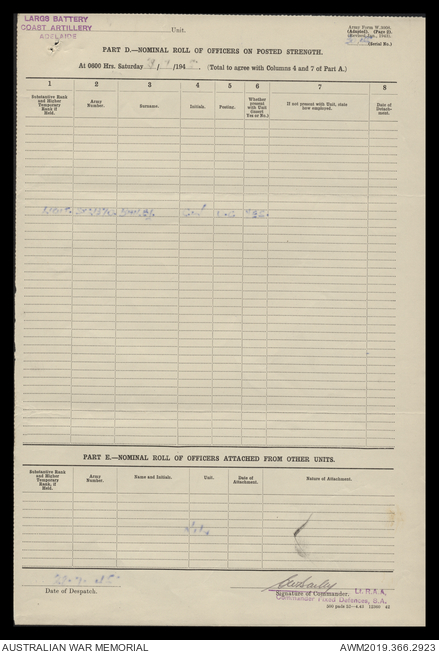 LARGS BATTERY
COAST ARTILLERY
ADELAIDE
Unit.
Army Form W.3008.
(Adapted). (Page 2).
(Serial No.)
PART D.—NOMINAL ROLL OF OFFICERS ON POSTED STRENGTH.
At 0600 Hrs. Saturday / /194 . (Total to agree with Columns 4 and 7 of Part A.)
1 2 3 4 5 6 7 8
Substantive Rank and Higher Temporary Rank if Held.
Army Number.
Surname.
Initials.
Posting.
Whether present with Unit (insert Yes or No.)
If not present with Unit, state how employed.
Date of Detachment.
PART E.—NOMINAL ROLL OF OFFICERS ATTACHED FROM OTHER UNITS.
Substantive Rank and Higher Temporary Rank, if Held.
Army Number.
Name and Initials.
Unit.
Date of Attachment.
Nature of Attachment.
Date of Despatch.
Signature of Commander.
Lt. R.A.A.
Commander Fixed Defences, S.A.
AUSTRALIAN WAR MEMORIAL
AWM2019.366.2923